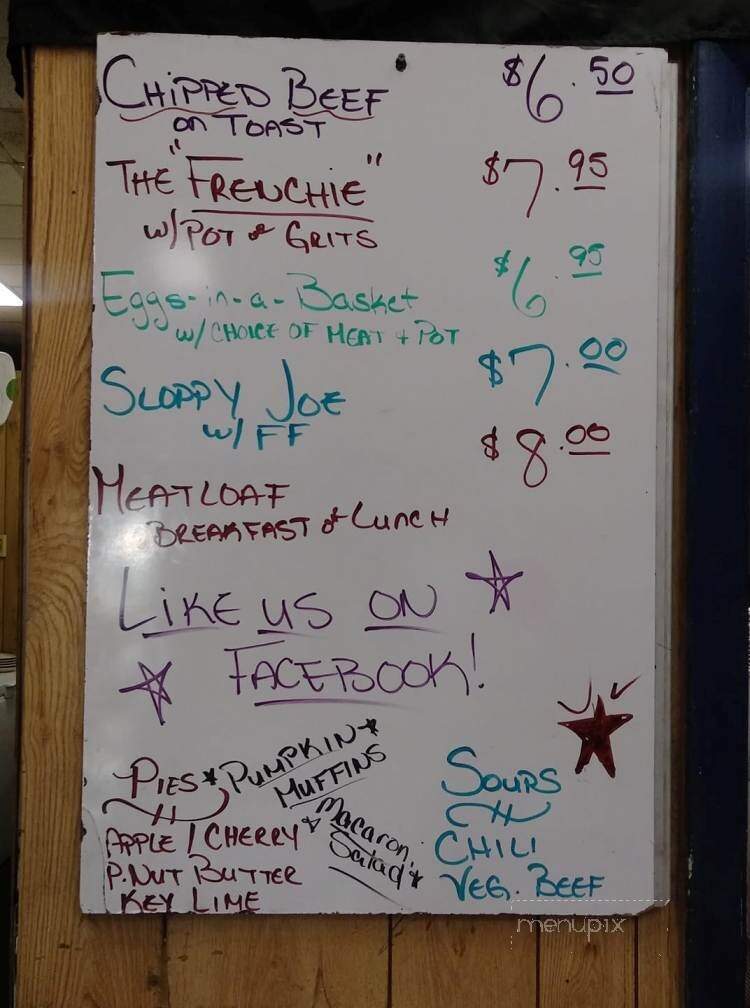 CHIPPED BEEF $6.50
ON TOAST
THE "FRENCHIE" $7.95
W/POT & GRITS
Eggs-in-a-Basket $6.95
w/ CHOICE OF MEAT + POT
SLOPPY JOE $7.00
w/ FF
$8.00
MEATLOAF
BREAKFAST & LUNCH
LIKE US ON
FACEBOOK!
PIES * PUMPKIN *
MUFFINS
APPLE / CHERRY
P.NUT BUTTER
KEY LIME
* Macaroni
Salad *
SOUPS
CHILI
VEG. BEEF
menupix